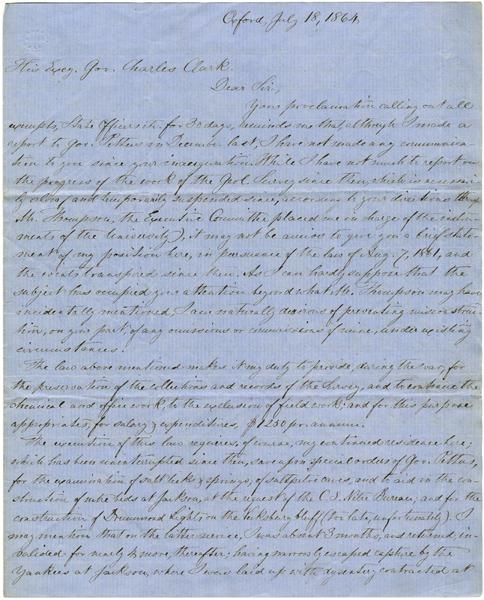 Oxford, July 18, 1864.
His Excy. Gov. Charles Clark.
Dear Sir,
Your proclamation calling out all
exempts, State Officers etc for 30 days, reminds me that although I made a
report to Gov. Pettus in December last, I have not made any communica-
tion to you since your inauguration. While I have not much to report on
the progress of the work of the Geol. Survey since then, (which is
and temporarily suspended since, according to your directions thro
Mr. Thompson, the Executive Committee placed me in charge of the
ments of the University), it may not be amiss to give you a brief state-
ment of my position here, in pursuance of the law of Aug. 7, 1861, and
the events transpired since then. As I can hardly suppose that the
subject has occupied your attention beyond what Mr. Thompson may have
incidentally mentioned, I am naturally desirous of preventing misconstruc-
tion, on your part, of any omissions or commissions of mine, under existing
circumstances.
The law above mentioned makes it my duty to provide, during the war, for
the preservation of the collections and records of the Survey, and to continue the
chemical and office work, to the exclusion of field work; and for this purpose
appropriates, for salary & expenditures, $1250 pr. annum.
The execution of this law requires, of course, my continued residence here;
which has been uninterrupted since then, save upon special orders of Gov. Pettus,
for the examination of salt licks & springs, of saltpetre caves, and to aid in the con-
struction of nitre beds at Jackson, at the request of the C.S. Nitre Bureau; and for the
construction of Drummond Lights on the Vicksburg bluff (too late, unfortunately). I
may mention that on the latter service, I was about 3 months, and returned, in-
valided for nearly 4 more, thereafter; having narrowly escaped capture by the
Yankees at Jackson, where I was laid up with dysentery contracted at